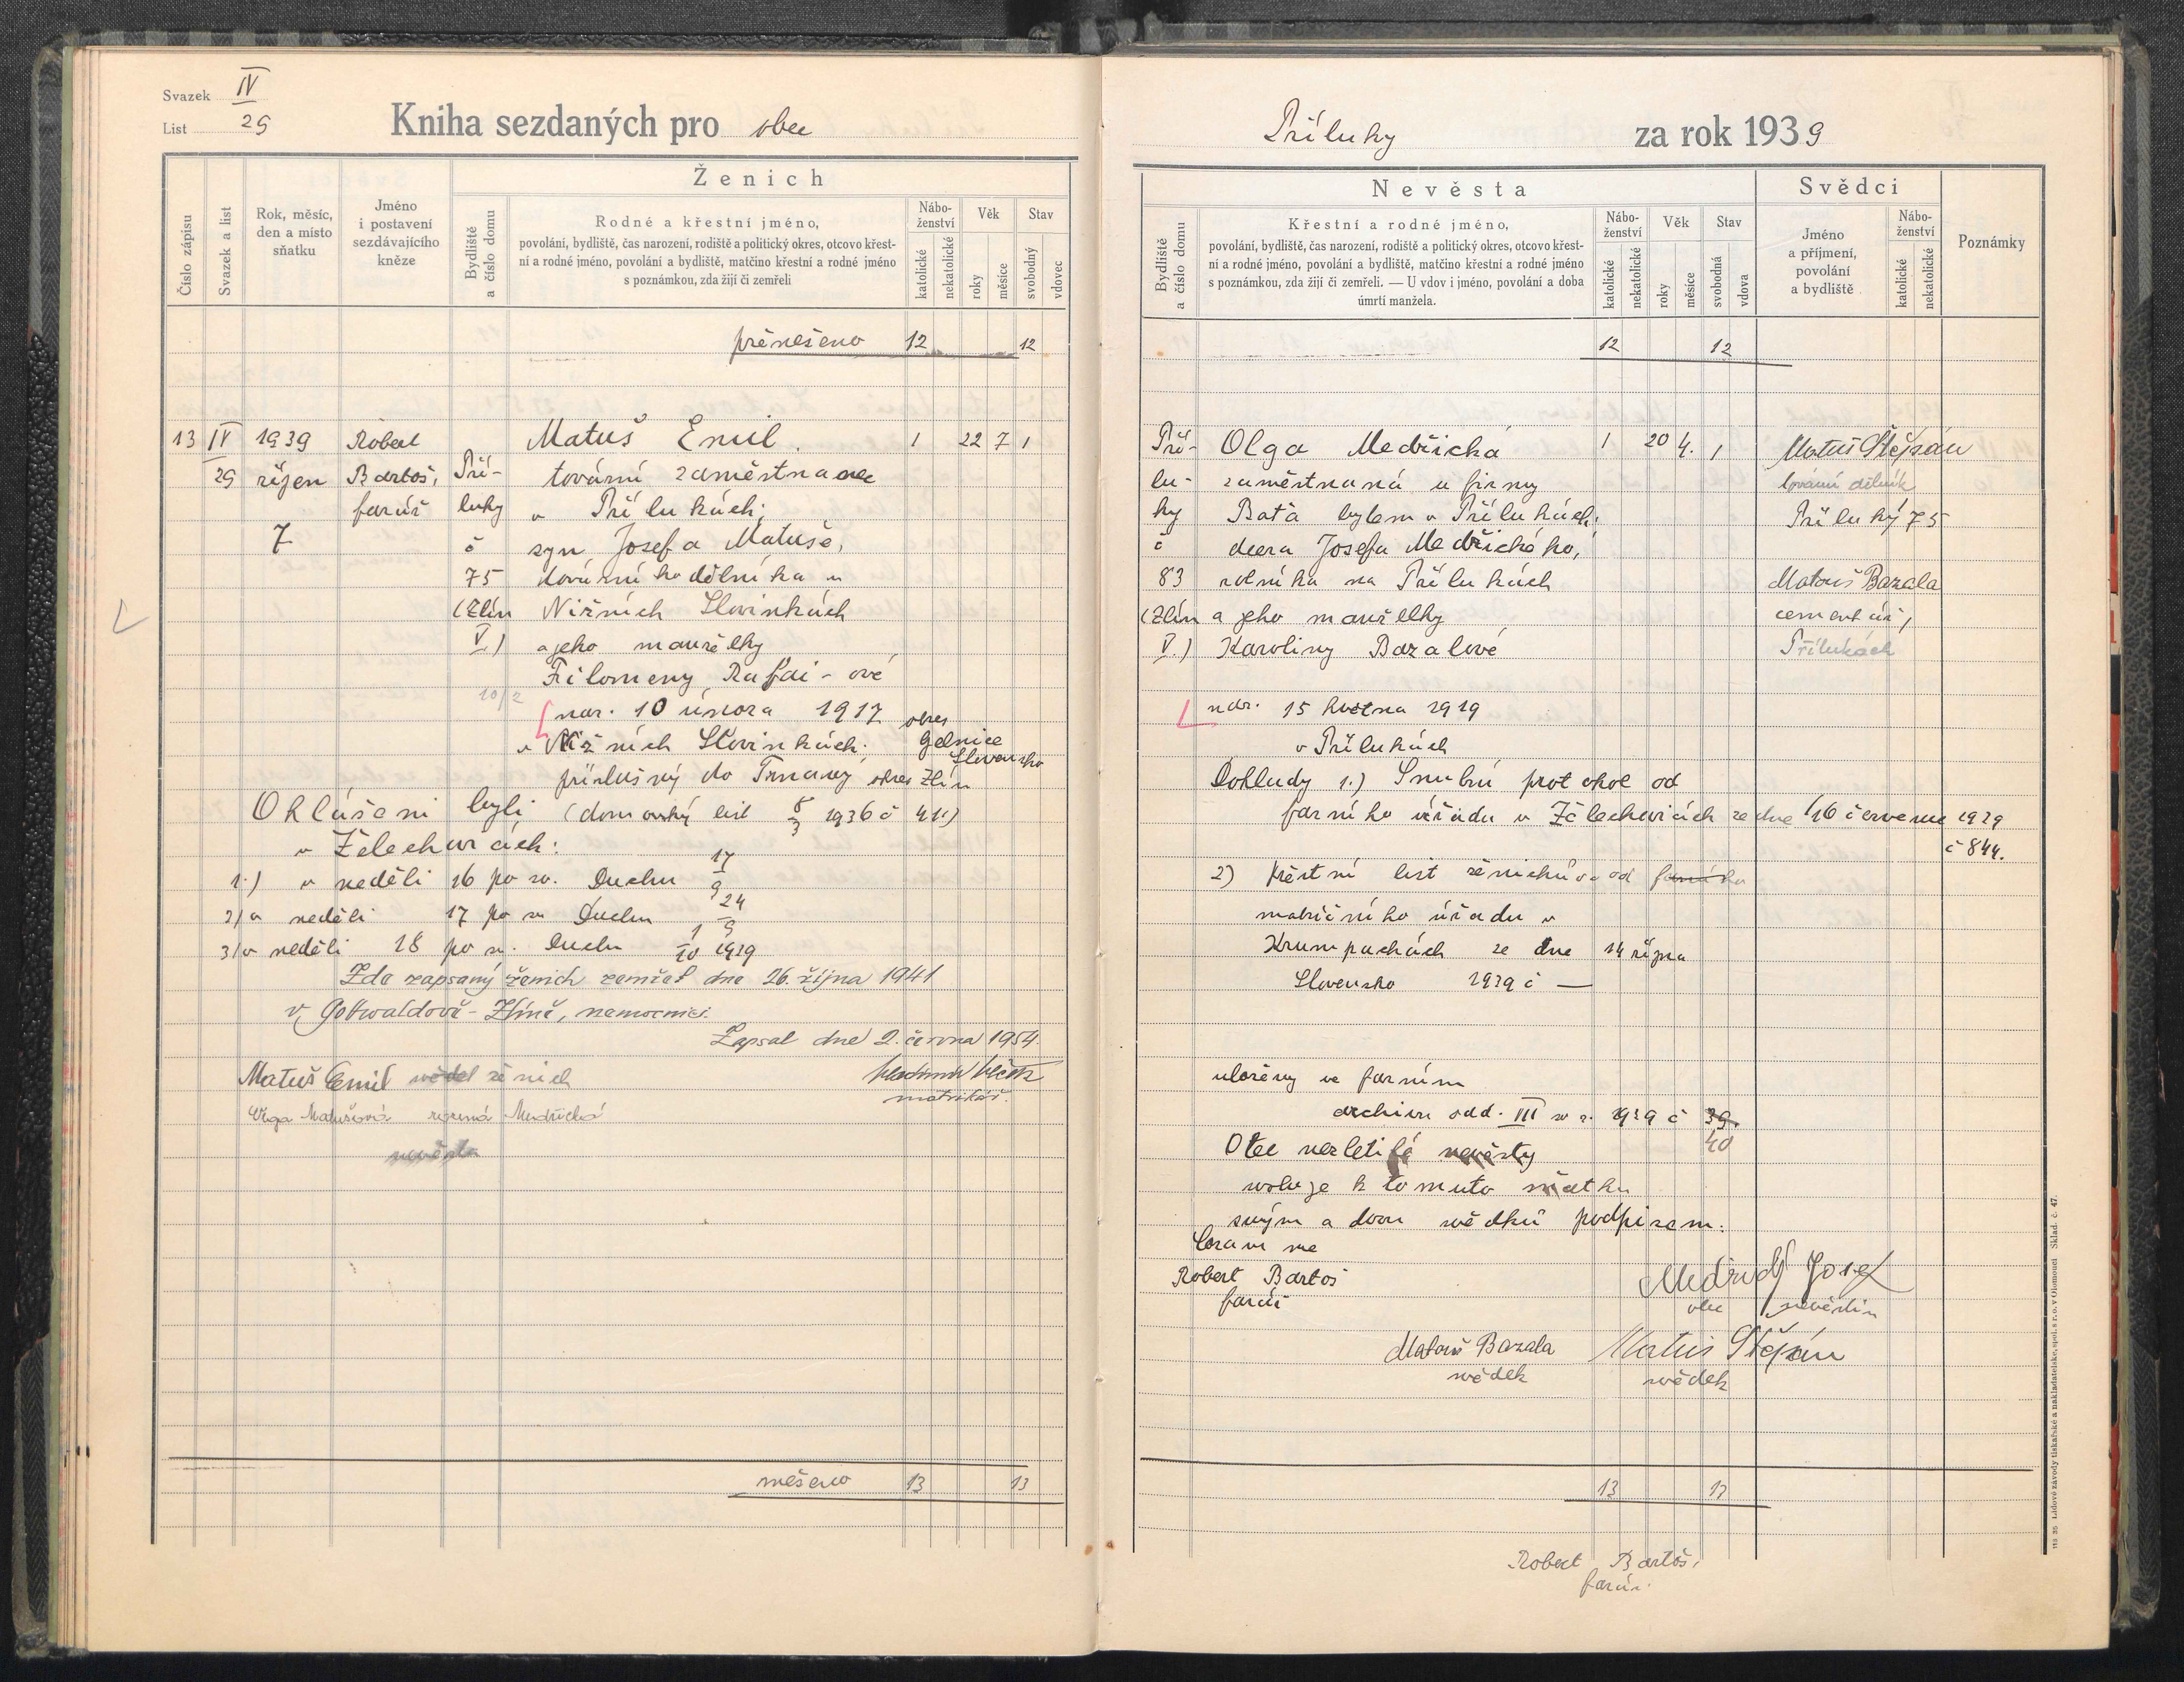 Svazek IV
List 29
Kniha sezdaných pro obec
Číslo zápisu
Svazek a list
Rok, měsíc,
den a místo
sňatku
Jméno
i postavení
sezdávajícího
kněze
Ženich
Bydliště
a číslo domu
Rodné a křestní jméno,
povolání, bydliště, čas narození, rodiště a politický okres, otcovo křest-
ní a rodné jméno, povolání a bydliště, matčino křestní a rodné jméno
s poznámkou, zda žijí či zemřeli
Nábo-
ženství
katolické
nekatolické
Věk
roky
měsíce
Stav
svobodný
vdovec
přenešeno 12 12
13 IV 1939 Robert Matuš Emil 1 22 7 1
29 říjen Bartoš, Pří- tovární zaměstnanec
farář luky v Přílukách;
7 č syn Josefa Matuše,
75 továrního dělníka v
(Zlín Nižních Slovinkách
V.) a jeho manželky
Filomeny Rafai-ové
10/2
nar. 10 února 1917 okres
v Nižních Slovinkách. Gelnice
Slovensko
příslušný do Trnavy, okres Zlín
Ohlášeni byli (domovský list 8/3 1936 č 41.)
v Želechovicích:
1.) v neděli 16 po sv. Duchu 17/9
2) v neděli 17 po sv. Duchu 24/9
3) v neděli 18 po sv. Duchu 1/10 1939
Zde zapsaný ženich zemřel dne 26. října 1941
v Gottwaldově - Zlíně, nemocnici.
Zapsal dne 2. června 1954.
matrikář.
Matuš Emil svědek ženich
Olga Matušová rozená Medřická
nevěsta
snešeno 13 13
Příluky za rok 1939
Nevěsta
Bydliště
a číslo domu
Křestní a rodné jméno,
povolání, bydliště, čas narození, rodiště a politický okres, otcovo křest-
ní a rodné jméno, povolání a bydliště, matčino křestní a rodné jméno
s poznámkou, zda žijí či zemřeli. — U vdov i jméno, povolání a doba
úmrtí manžela.
Nábo-
ženství
katolické
nekatolické
Věk
roky
měsíce
Stav
svobodná
vdova
Svědci
Jméno
a příjmení,
povolání
a bydliště
Nábo-
ženství
katolické
nekatolické
Poznámky
12 12
Pří- Olga Medřická 1 20 4. 1 Matuš Štěpán
lu- zaměstnaná u firmy tovární dělník
ky Baťa bytem v Přílukách; Příluky 75
č dcera Josefa Medřického,
83 rolníka na Přílukách Matouš Bazala
(Zlín a jeho manželky cementář,
V.) Karoliny Bazalové Přílukách
nar. 15 května 1919
v Přílukách
Doklady 1.) Snubní protokol od
farního úřadu v Želechovicích ze dne 16 července 1939
č 844.
2) Křestní list ženichův od farního
matričního úřadu v
Krumpachách ze dne 14 října
Slovensko 1939 č —
uloženy ve farním
archivu odd. III sv z. 1939 č 39.
40
Otec nezletilé nevěsty
svoluje k tomuto sňatku
svým a dvou svědků podpisem.
Coram me
Robert Bartoš
farář
Medřický Josef
otec nevěstin
Matouš Bazala Matuš Štěpán
svědek svědek
13 13
Robert Bartoš,
farář.
119 35 Lidové závody tiskařské a nakladatelské, spol. s r. o. v Olomouci Sklad. č. 47.